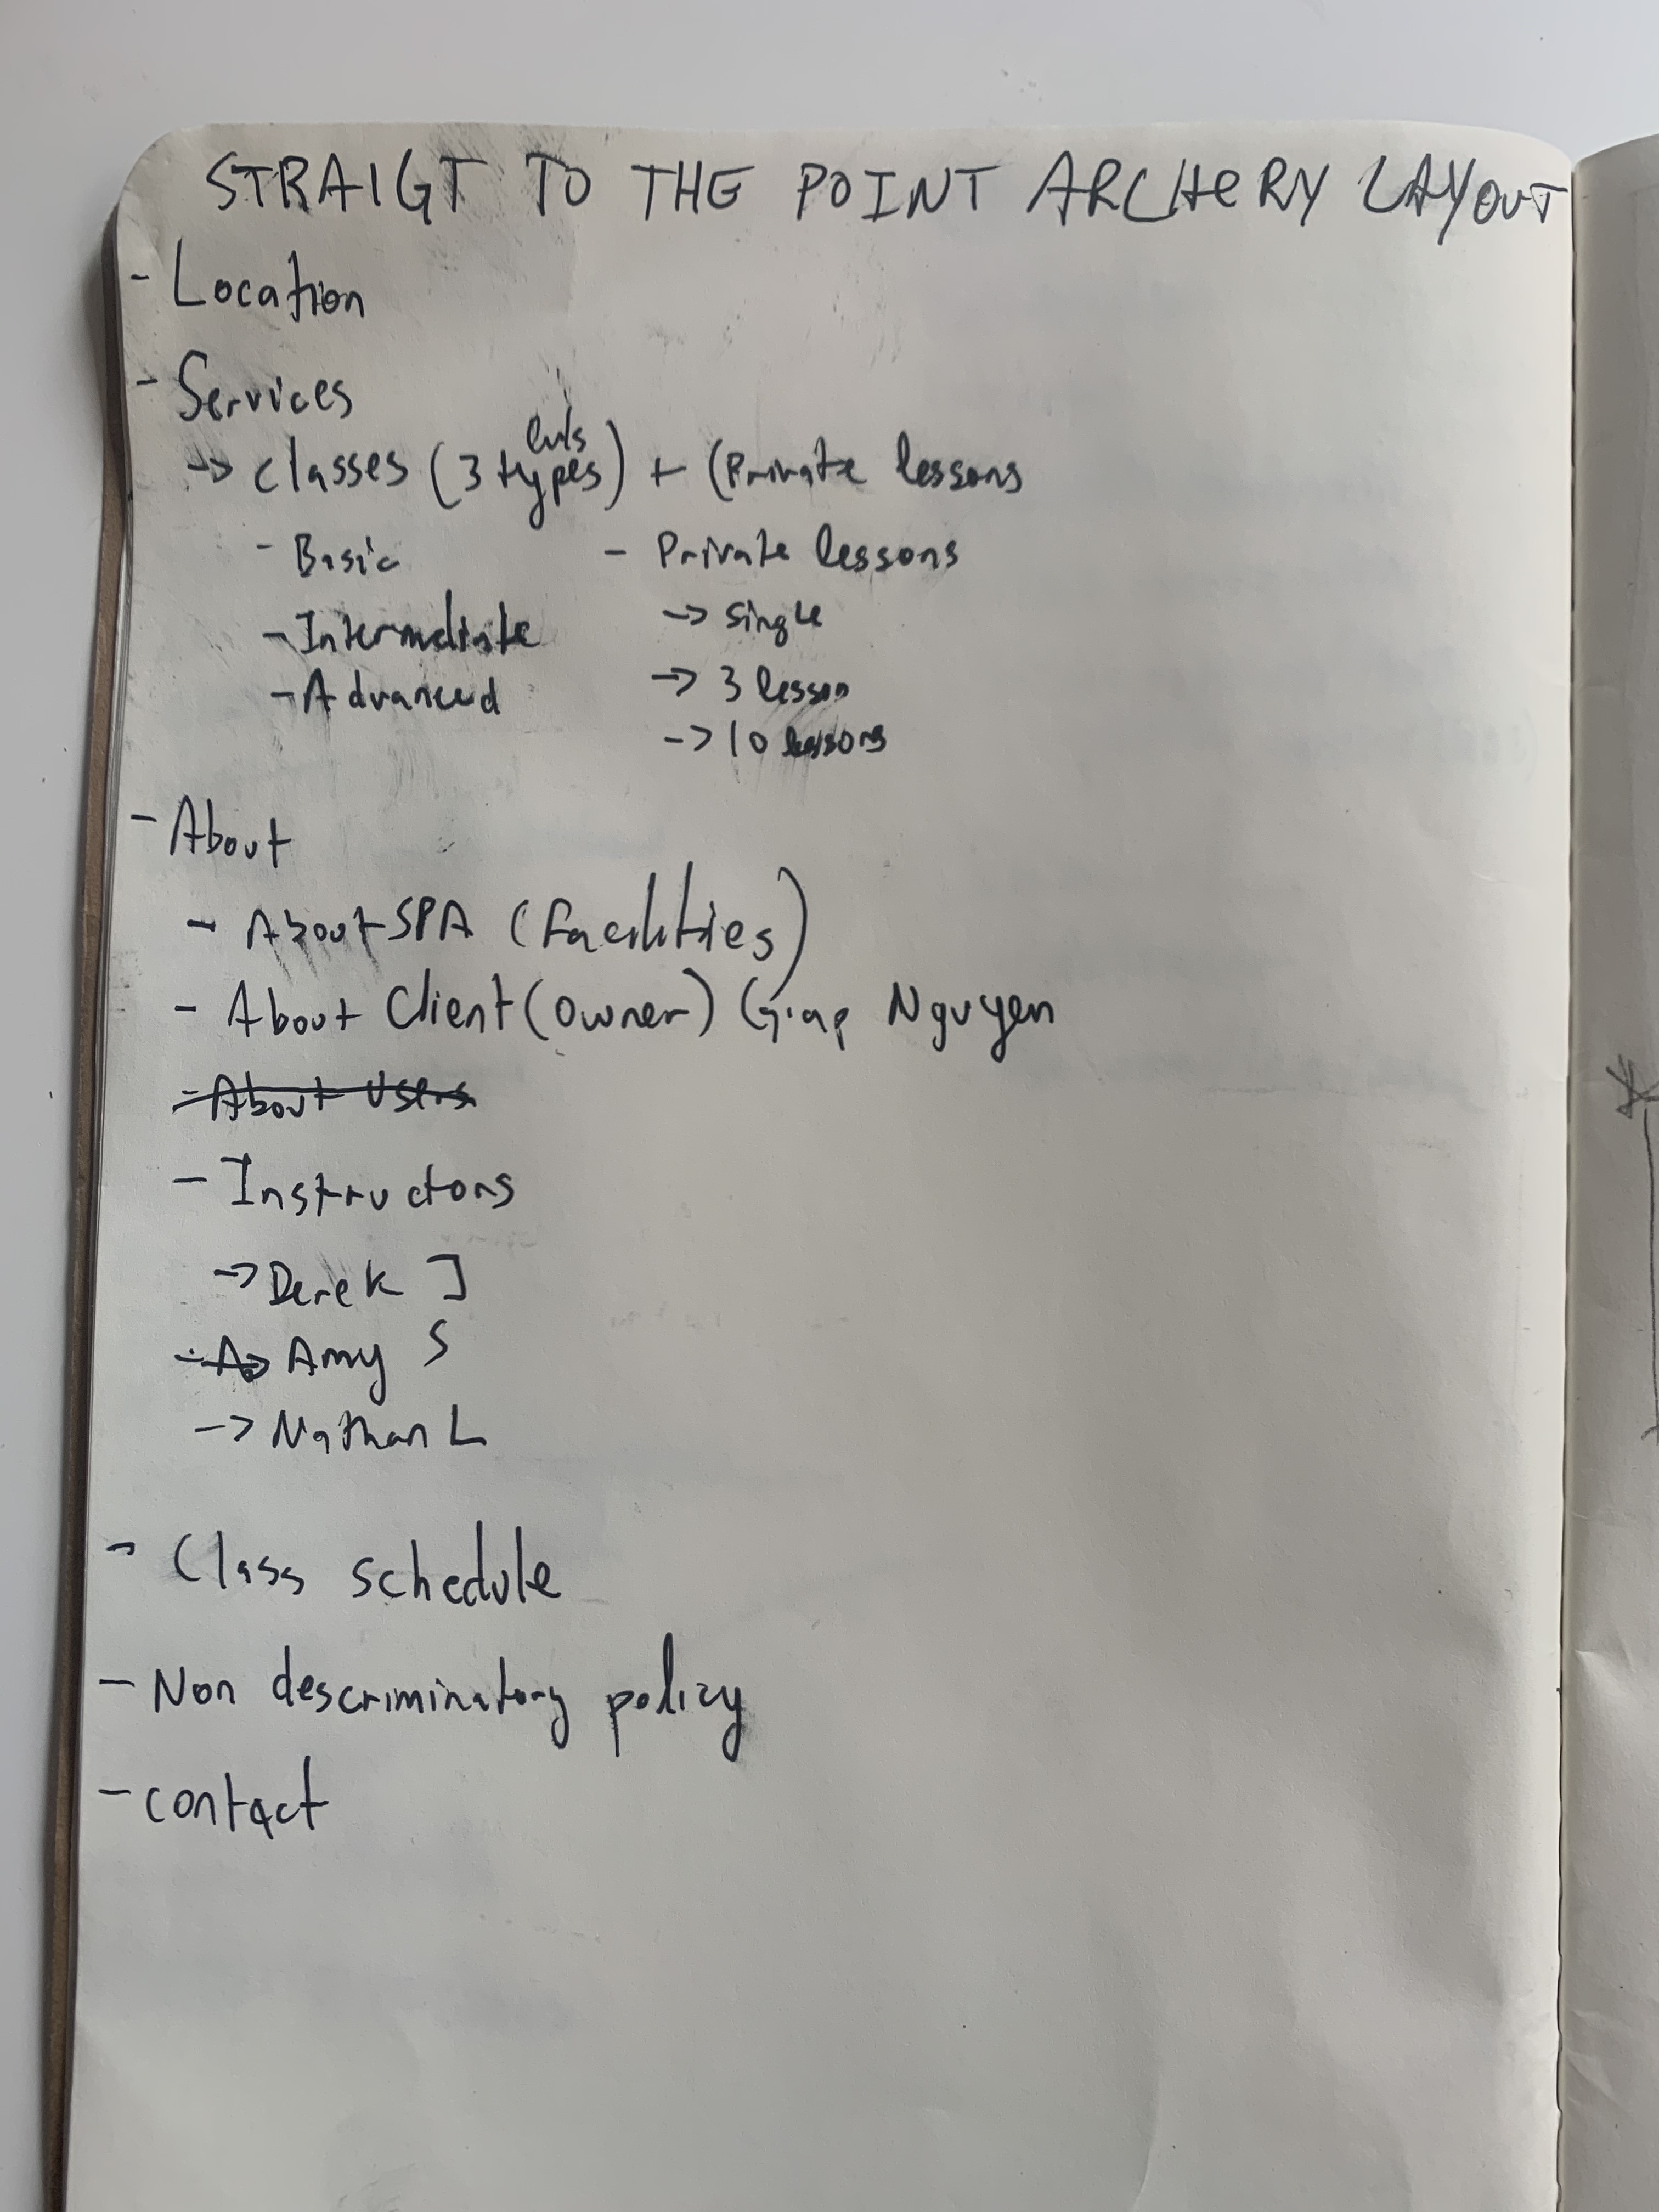 STRAIGT TO THE POINT ARCHERY LAYOUT
- Location
- Services
lvls
-> classes (3 types) + (Private lessons
- Basic - Private lessons
- Intermediate -> single
- Advanced -> 3 lesson
-> 10 lessons
- About
- About SPA (facilities)
- About Client (owner) Giap Nguyen
- About Users
- Instructors
-> Derek J
-> Amy S
-> Nathan L
- Class schedule
- Non descriminatory policy
- contact